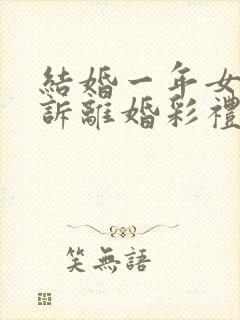 結婚一年女
訴離婚彩禮
笑無語